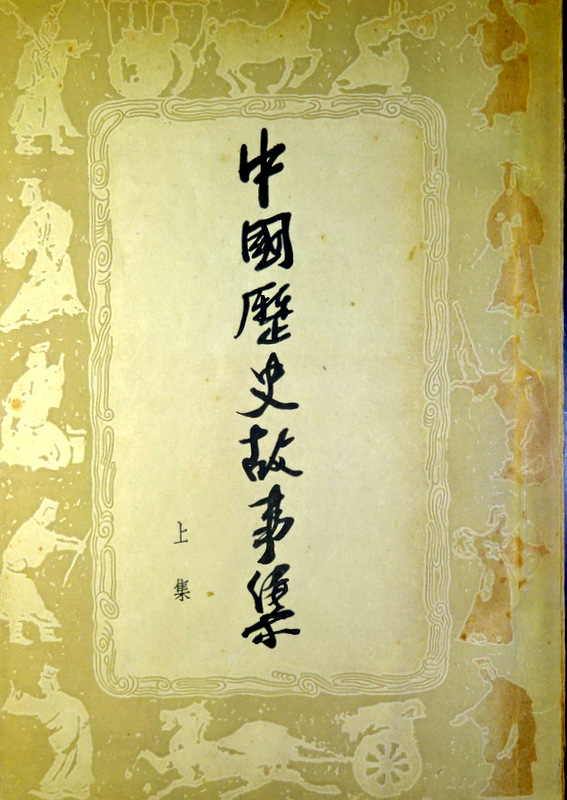 中國歷史故事集
上集